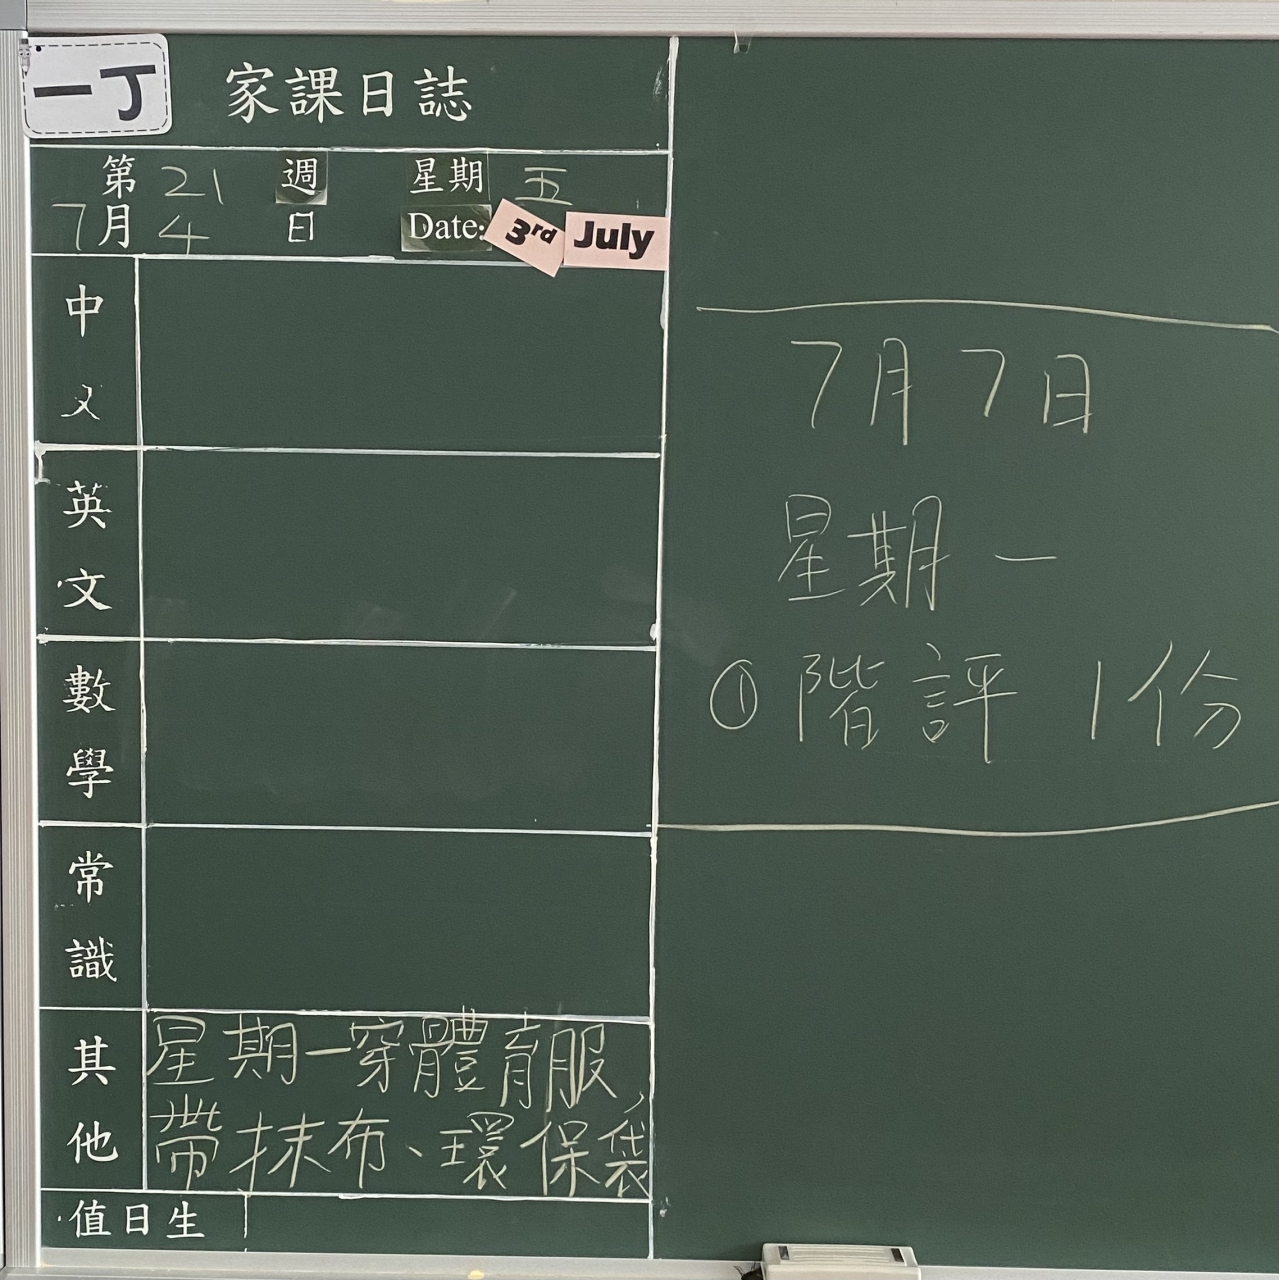 一丁
家課日誌
第 21 週 星期 五
7月 4 日 Date: 3rd July
中文
英文
數學
常識
其他
星期一穿體育服,
帶抹布、環保袋
值日生
7月7日
星期一
① 階評 1份